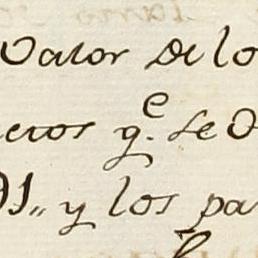 Valor de lo
etos q.e se d
91,, y los pa